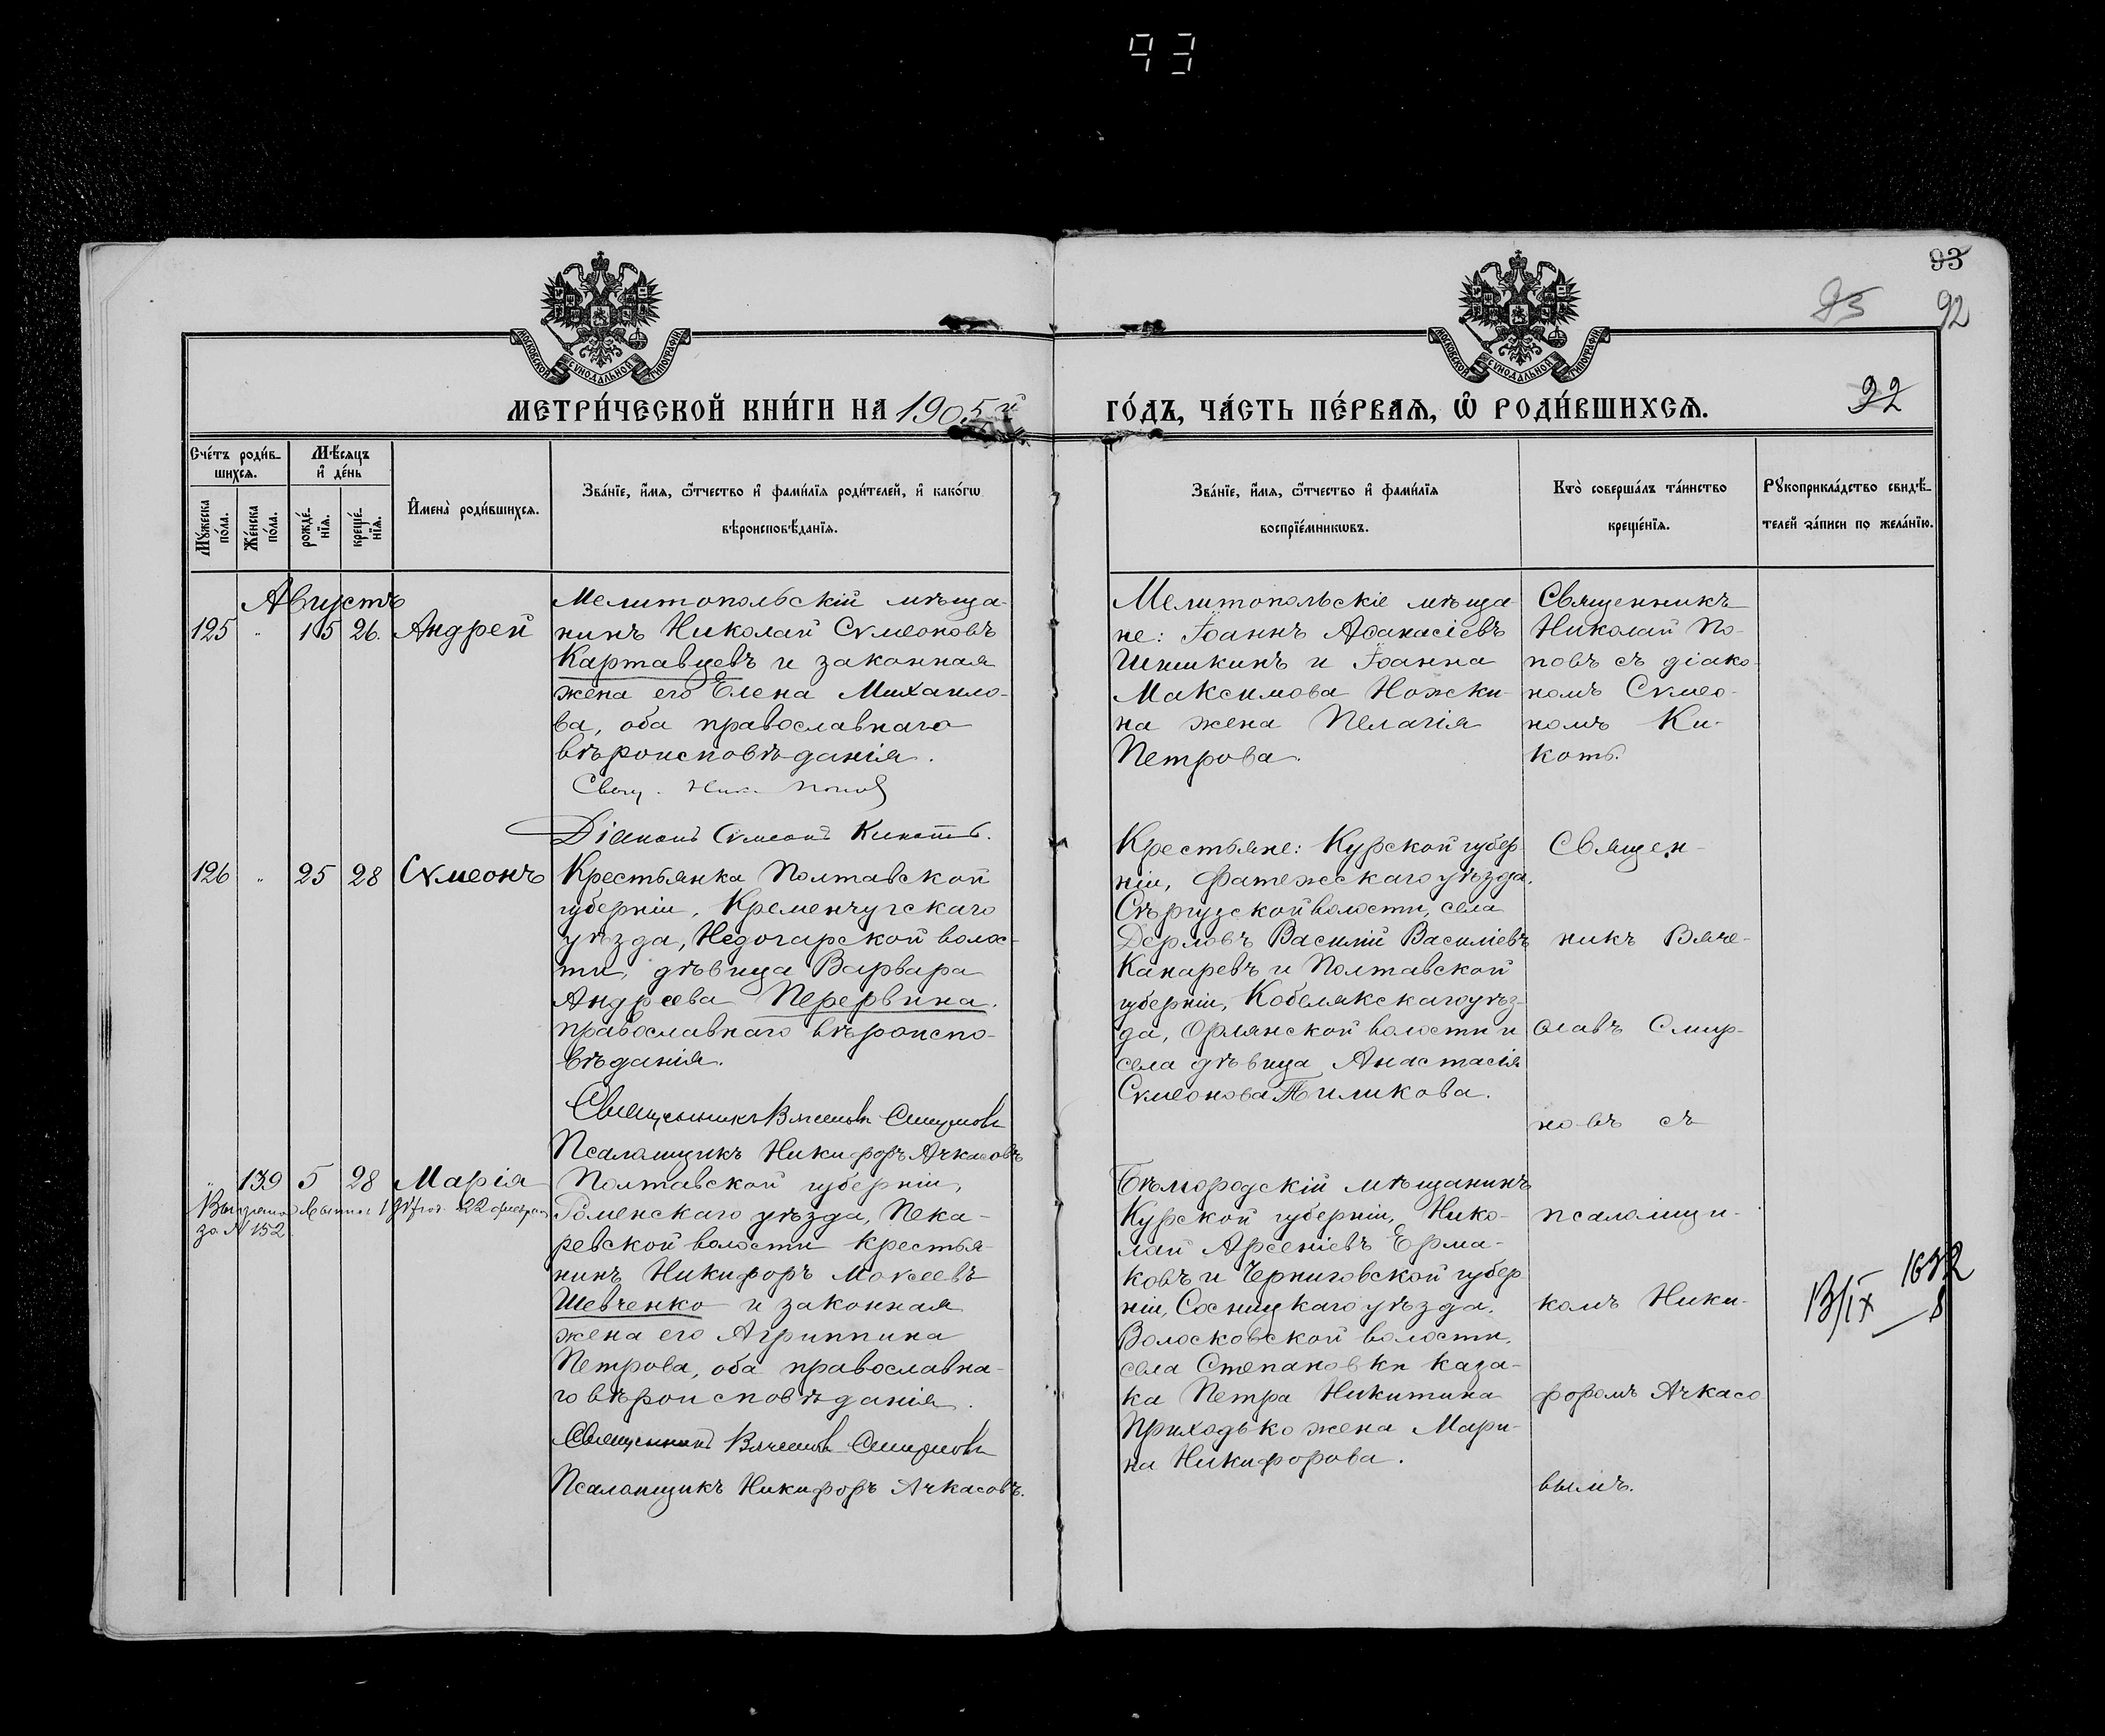 93
93
95
92
22
МОСКОВСКОЙ СѴНОДАЛЬНОЙ ТИПОГРАФІИ
МОСКОВСКОЙ СѴНОДАЛЬНОЙ ТИПОГРАФІИ
МЕТРИ́ЧЕСКОЙ КНИ́ГИ НА 1905й
ГО́ДЪ, ЧА́СТЬ ПЕ́РВАЯ, Ѿ РОДИ́ВШИХСЯ.
Сче́тъ роди́в-
шихся.
Мѣ́сяцъ
и҆ де́нь
Мꙋ́жеска по́ла.
Же́нска по́ла.
рожде́-
нїя.
креще́-
нїя.
И҆мена̀ роди́вшихся.
Зва́нїе, и҆́мя, ѻ҆́тчество и҆ фами́лїя роди́телей, и҆ како́гѡ
вѣроисповѣ́данїя.
Зва́нїе, и҆́мя, ѻ҆́тчество и҆ фами́лїя
воспрїе́мникѡвъ.
Кто̀ соверша́лъ та́инство
креще́нїя.
Рꙋкоприкла́дство свидѣ́-
телей за́писи по жела́нїю.
Августъ
125 " 15 26. Андрей
Мелитопольскій мѣща-
нинъ Николай Сѵмеоновъ
Картавцевъ и законная
жена его Елена Михаило-
ва, оба православнаго
вѣроисповѣданія.
Свящ. Ник. Попов
Діаконъ Сѵмеонъ Кикоть.
Мелитопольскіе мѣща-
не: Іоаннъ Аѳанасіевъ
Шишкинъ и Іоанна
Максимова Ножки-
на жена Пелагія
Петрова.
Священникъ
Николай По-
повъ съ діако-
номъ Сѵмео-
номъ Ки-
коть.
126 " 25 28 Сѵмеонъ
Крестьянка Полтавской
губерніи, Кременчугскаго
уѣзда, Недогарской волос-
ти, дѣвица Варвара
Андреева Перервина.
православнаго вѣроиспо-
вѣданія.
Священникъ Вячеславъ Смирновъ
Псаломщикъ Никифоръ Ачкасовъ
Крестьяне: Курской губер-
ніи, Фатежскаго уѣзда.
Сѣргузской волости, села
Дерловъ Василій Василіевъ
Канаревъ и Полтавской
губерніи, Кобелякскаго уѣз-
да, Орлянской волости и
села дѣвица Анастасія
Сѵмеонова Биликова.
Священ-
никъ Вяче-
славъ Смир-
новъ съ
псаломщи-
комъ Ники-
форомъ Ачкасо-
вымъ.
" 139 5 28 Марія
22 февраля
за № 152
Полтавской губерніи,
Роменскаго уѣзда, Пека-
ревской волости крестья-
нинъ Никифоръ Моисеевъ
Шевченко и законная
жена его Агриппина
Петрова, оба православна-
го вѣроисповѣданія.
Священникъ Вячеславъ Смирновъ
Псаломщикъ Никифоръ Ачкасовъ.
Бѣлгородскій мѣщанинъ
Курской губерніи, Нико-
лай Арсеніевъ Ерма-
ковъ и Черниговской губер-
ніи, Сосницкаго уѣзда.
Волосковской волости.
села Степановки каза-
ка Петра Никитина
Приходько жена Мари-
на Никифорова.